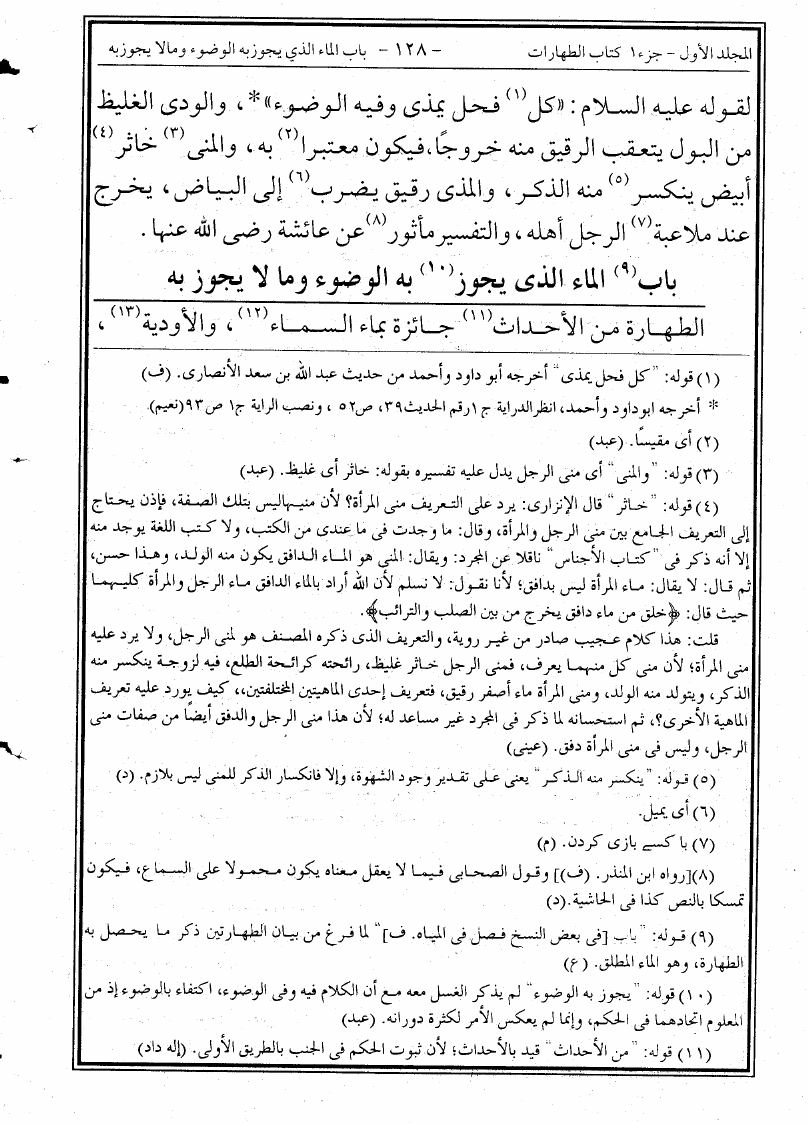 المجلد الأول - جزء ١ كتاب الطهارات - ١٢٨ - باب الماء الذي يجوز به الوضوء وما لا يجوز به
لقوله عليه السلام: «كل(١) فحل يمذى وفيه الوضوء»*، والودى الغليظ
من البول يتعقب الرقيق منه خروجًا، فيكون معتبرا(٢) به، والمنى(٣) خاثر(٤)
أبيض ينكسر(٥) منه الذكر، والمذى رقيق يضرب(٦) إلى البياض، يخرج
عند ملاعبة(٧) الرجل أهله، والتفسير مأثور(٨) عن عائشة رضى الله عنها.
باب(٩) الماء الذى يجوز(١٠) به الوضوء وما لا يجوز به
الطهارة من الأحداث(١١) جائزة بماء السماء(١٢)، والأودية(١٣)،
(١) قوله: "كل فحل يمذى" أخرجه أبو داود وأحمد من حديث عبد الله بن سعد الأنصارى. (ف)
* أخرجه ابوداود وأحمد، انظر الدراية ج١ رقم الحديث ٣٩، ص٥٢، ونصب الراية ج١ ص٩٣ (نعيم).
(٢) أى مقيسًا. (عبد)
(٣) قوله: "والمنى" أى منى الرجل يدل عليه تفسيره بقوله: خاثر أى غليظ. (عبد)
(٤) قوله: "خاثر" قال الإنزارى: يرد على التعريف منى المرأة؟ لأن منيها ليس بتلك الصفة، فإذن يحتاج
إلى التعريف الجامع بين منى الرجل والمرأة، وقال: ما وجدت فى ما عندى من الكتب، ولا كتب اللغة يوجد منه
إلا أنه ذكر فى "كتاب الأجناس" ناقلا عن المجرد: ويقال: المنى هو الماء الدافق يكون منه الولد، وهذا حسن،
ثم قال: لا يقال: ماء المرأة ليس بدافق؛ لأنا نقول: لا نسلم لأن الله أراد بالماء الدافق ماء الرجل والمرأة كليهما
حيث قال: ﴿خلق من ماء دافق يخرج من بين الصلب والترائب﴾.
قلت: هذا كلام عجيب صادر من غير روية، والتعريف الذى ذكره المصنف هو لمنى الرجل، ولا يرد عليه
منى المرأة؛ لأن منى كل منهما يعرف، فمنى الرجل خاثر غليظ، رائحته كرائحة الطلع، فيه لزوجة ينكسر منه
الذكر، ويتولد منه الولد، ومنى المرأة ماء أصفر رقيق، فتعريف إحدى الماهيتين المختلفتين،، كيف يورد عليه تعريف
الماهية الأخرى؟، ثم استحسانه لما ذكر فى المجرد غير مساعد له؛ لأن هذا منى الرجل والدفق أيضًا من صفات منى
الرجل، وليس فى منى المرأة دفق. (عينى)
(٥) قوله: "ينكسر منه الذكر" يعنى على تقدير وجود الشهوة، وإلا فانكسار الذكر للمنى ليس بلازم. (د)
(٦) أى يميل.
(٧) با كسے بازى كردن. (م)
(٨) [رواه ابن المنذر. (ف)] وقول الصحابى فيما لا يعقل معناه يكون محمولا على السماع، فيكون
تمسكا بالنص كذا فى الحاشية.(د)
(٩) قوله: "باب [فى بعض النسخ فصل فى المياه. ف]" لما فرغ من بيان الطهارتين ذكر ما يحصل به
الطهارة، وهو الماء المطلق. (ع)
(١٠) قوله: "يجوز به الوضوء" لم يذكر الغسل معه مع أن الكلام فيه وفى الوضوء، اكتفاء بالوضوء إذ من
المعلوم اتحادهما فى الحكم، وإنما لم يعكس الأمر لكثرة دورانه. (عبد)
(١١) قوله: "من الأحداث" قيد بالأحداث؛ لأن ثبوت الحكم فى الجنب بالطريق الأولى. (إله داد)